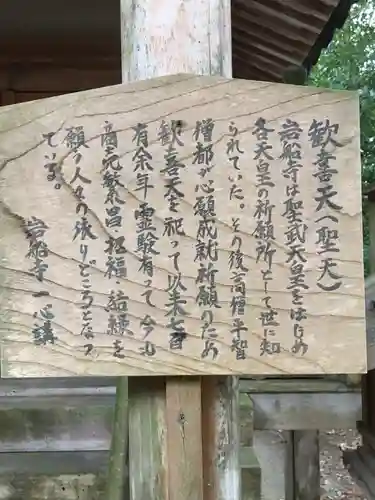 歓喜天（聖天）
岩船寺は聖武天皇をはじめ
各天皇の祈願所として世に知
られていた。その後高僧平智
僧都が心願成就祈願のため
歓喜天を祀って以来七百
有余年霊験有って今も
商元繁昌、招福、結縁を
願う人々の涼りどころとなっ
ている。
岩船寺一心講